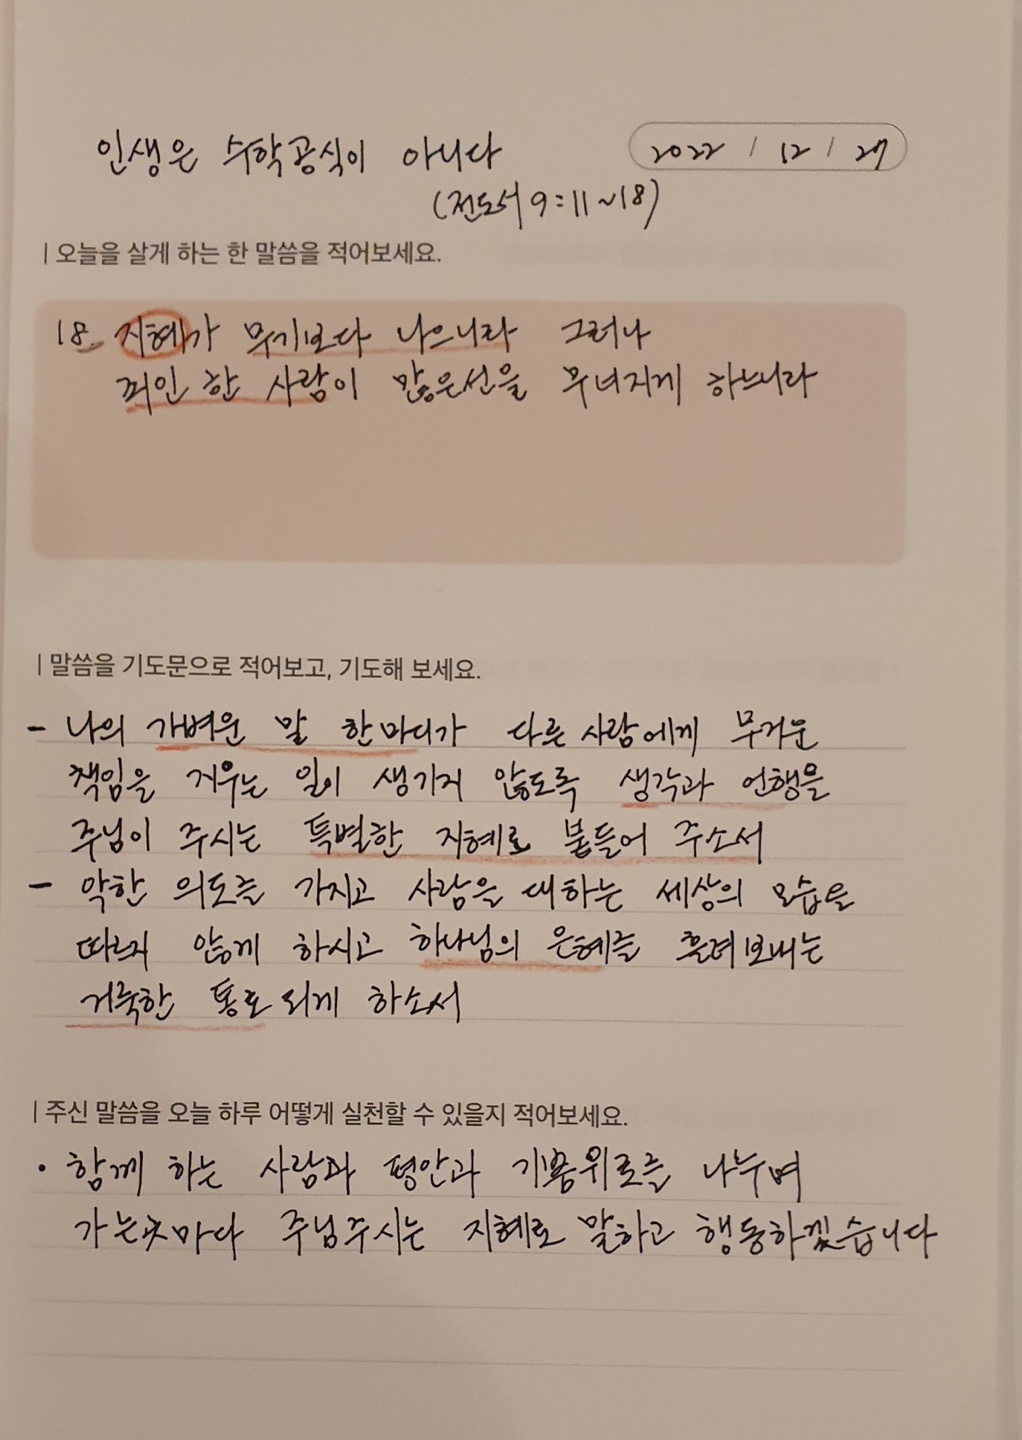 인생은 수학공식이 아니다
2022 / 12 / 27
(전도서 9:11~18)
| 오늘을 살게 하는 한 말씀을 적어보세요.
18. 지혜가 무기보다 나으니라 그러나
죄인 한 사람이 많은선을 무너지게 하느니라
| 말씀을 기도문으로 적어보고, 기도해 보세요.
- 나의 가벼운 말 한마디가 다른 사람에게 무거운
책임을 지우는 일이 생기지 않도록 생각과 언행을
주님이 주시는 특별한 지혜로 붙들어 주소서
- 악한 의도를 가지고 사람을 대하는 세상의 모습을
따르지 않게 하시고 하나님의 은혜를 흘려보내는
거룩한 통로 되게 하소서
| 주신 말씀을 오늘 하루 어떻게 실천할 수 있을지 적어보세요.
• 함께 하는 사람과 평안과 기쁨위로를 나누며
가는곳마다 주님주시는 지혜로 말하고 행동하겠습니다